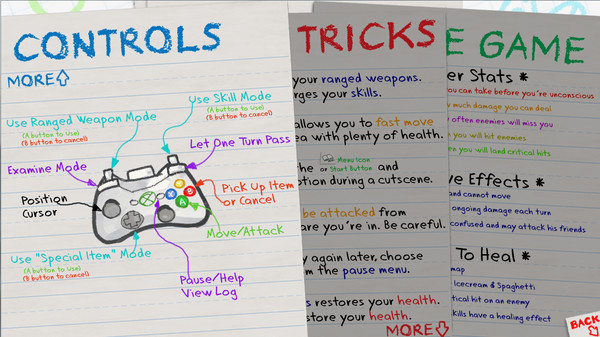 CONTROLS
MORE
Use Ranged Weapon Mode
(A button to use)
(B button to cancel)
Use Skill Mode
(A button to Use)
(B button to cancel)
Let One Turn Pass
Examine Mode
Position
Cursor
Pick Up Item
or Cancel
Move/Attack
Use "Special Item" Mode
(A button to Use)
(B button to cancel)
Pause/Help
View Log
X
Y
B
A
TRICKS
your ranged weapons.
rges your skills.
allows you to fast move
ea with plenty of health.
Menu Icon
or Start Button
and
otion during a cutscene.
be attacked from
are you're in. Be careful.
y again later, choose
om the pause menu.
s restores your health.
store your health.
MORE
E GAME
er Stats *
you can take before you're unconscious
much damage you can deal
often enemies will miss you
you will hit enemies
en you will land critical hits
ve Effects *
and cannot move
ongoing damage each turn
confused and may attack his friends
To Heal *
map
Icecream & Spaghetti
tical hit on an enemy
kills have a healing effect
BACK